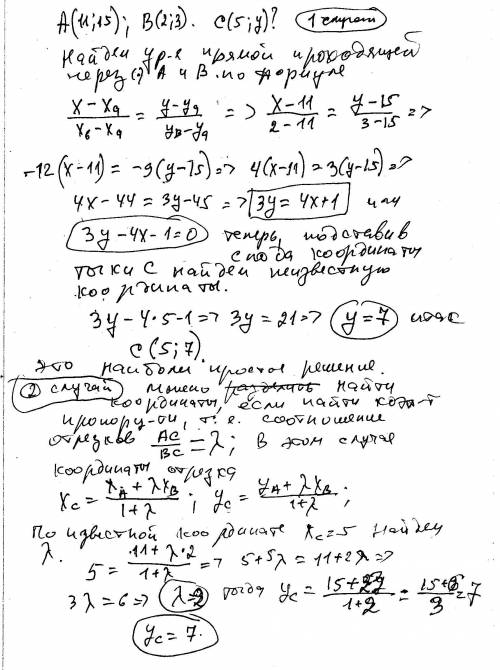 A(11;15); B(2;3). C(5;y)? 1 случай
Найдем ур-е прямой проходящей
через (·) A и B по формуле
x-xa/xb-xa = y-ya/yB-ya => x-11/2-11 = y-15/3-15 =>
-12(x-11) = -9(y-15) => 4(x-11) = 3(y-15) =>
4x-44 = 3y-45 => 3y = 4x+1 или
3y-4x-1=0 теперь, подставив
сюда координаты
точки C найдем неизвестную
координаты.
3y-4·5-1 => 3y = 21 => y=7
C(5;7)
это наиболее простое решение.
2 случай можно найти
координаты, если найти
т.е. соотношение
отрезков AC/BC = λ; В этом случае
координаты отрезка
xc = xA + λxB/1+λ ; yc = yA + λxB/1+λ ;
По известной координате xc=5 найдем
λ. 5 = 11+λ·2/1+λ => 5+5λ = 11+2λ =>
3λ=6 => λ=2 тогда yc = 15+2·3/1+2 = 15+6/3 = 7
yc = 7.